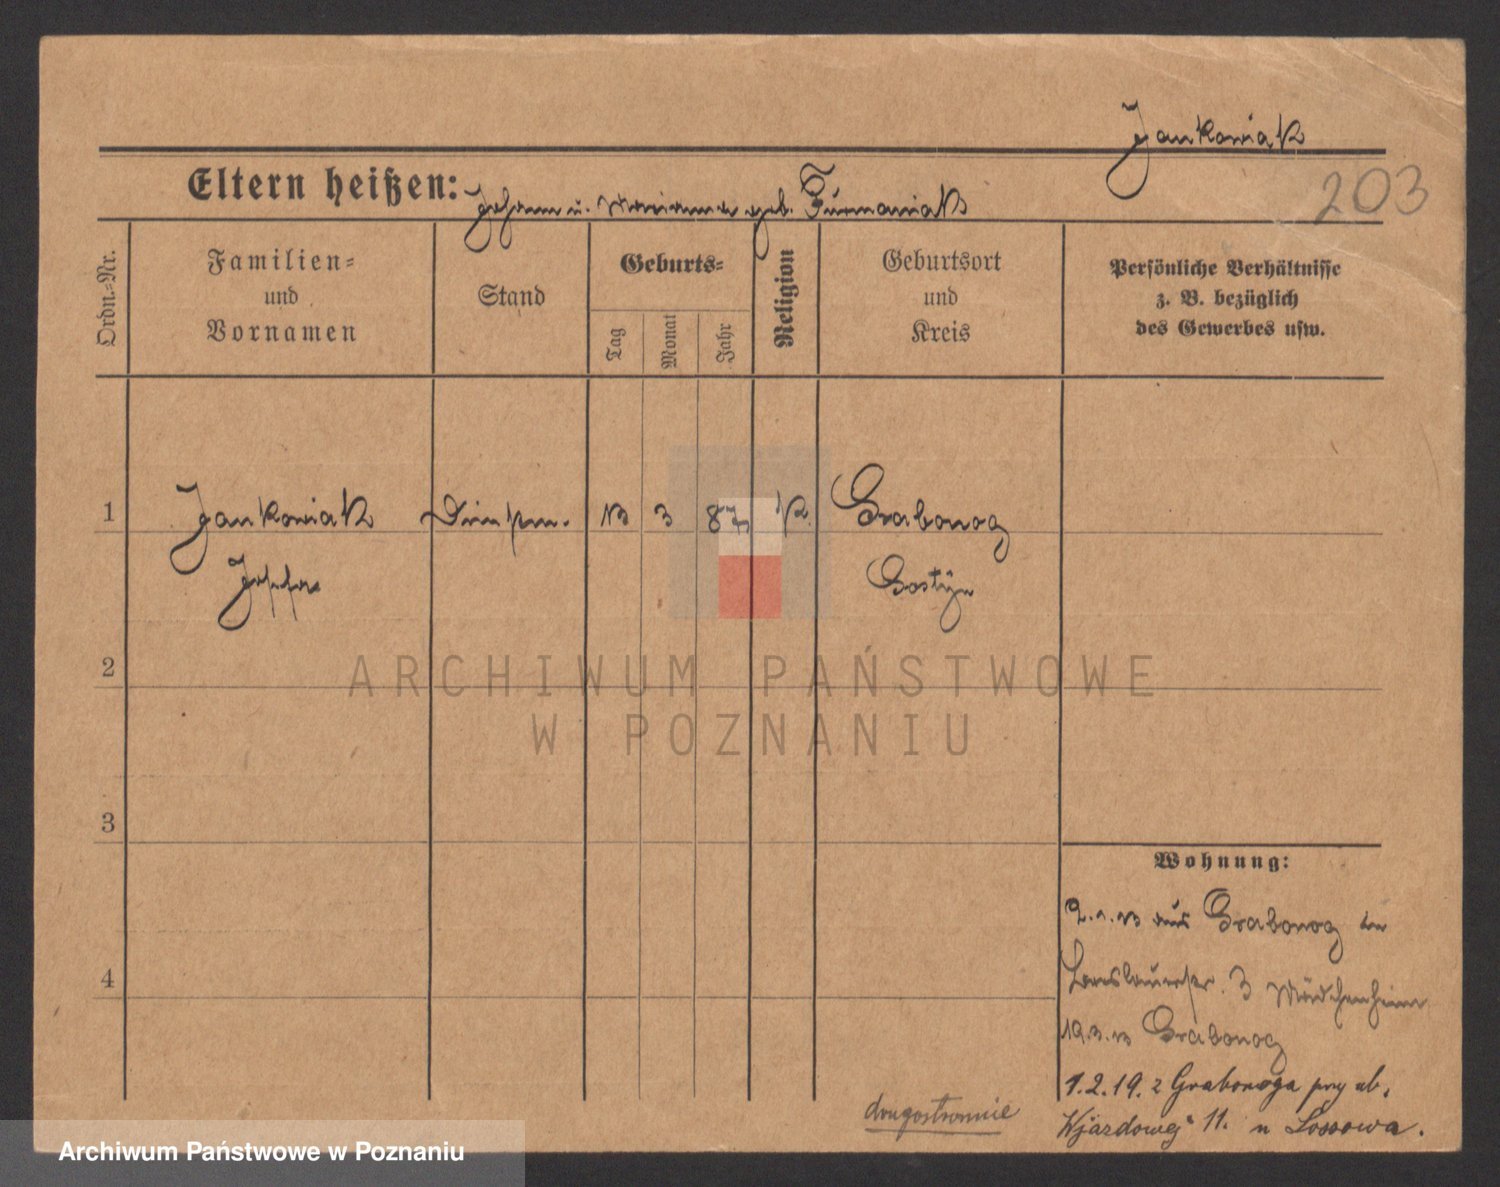 Jankowiak
203
Eltern heißen: Johann u. Marianna geb. Furmaniak
Ordn.-Nr.
Familien-
und
Vornamen
Stand
Geburts-
Tag
Monat
Jahr
Religion
Geburtsort
und
Kreis
Persönliche Verhältnisse
z. B. bezüglich
des Gewerbes usw.
1 Jankowiak 13 3 87 K. Grabonog
Josefa Gostyn
2
3
4
Wohnung:
2.1.13 aus Grabonog in
Breslauerstr. 3 Mädchenheim
19.3.13 Grabonog
1.2.19. z Grabonoga przy ul.
Wjazdowej 11. u Lossowa.
drugostronnie
ARCHIWUM PAŃSTWOWE
W POZNANIU
Archiwum Państwowe w Poznaniu